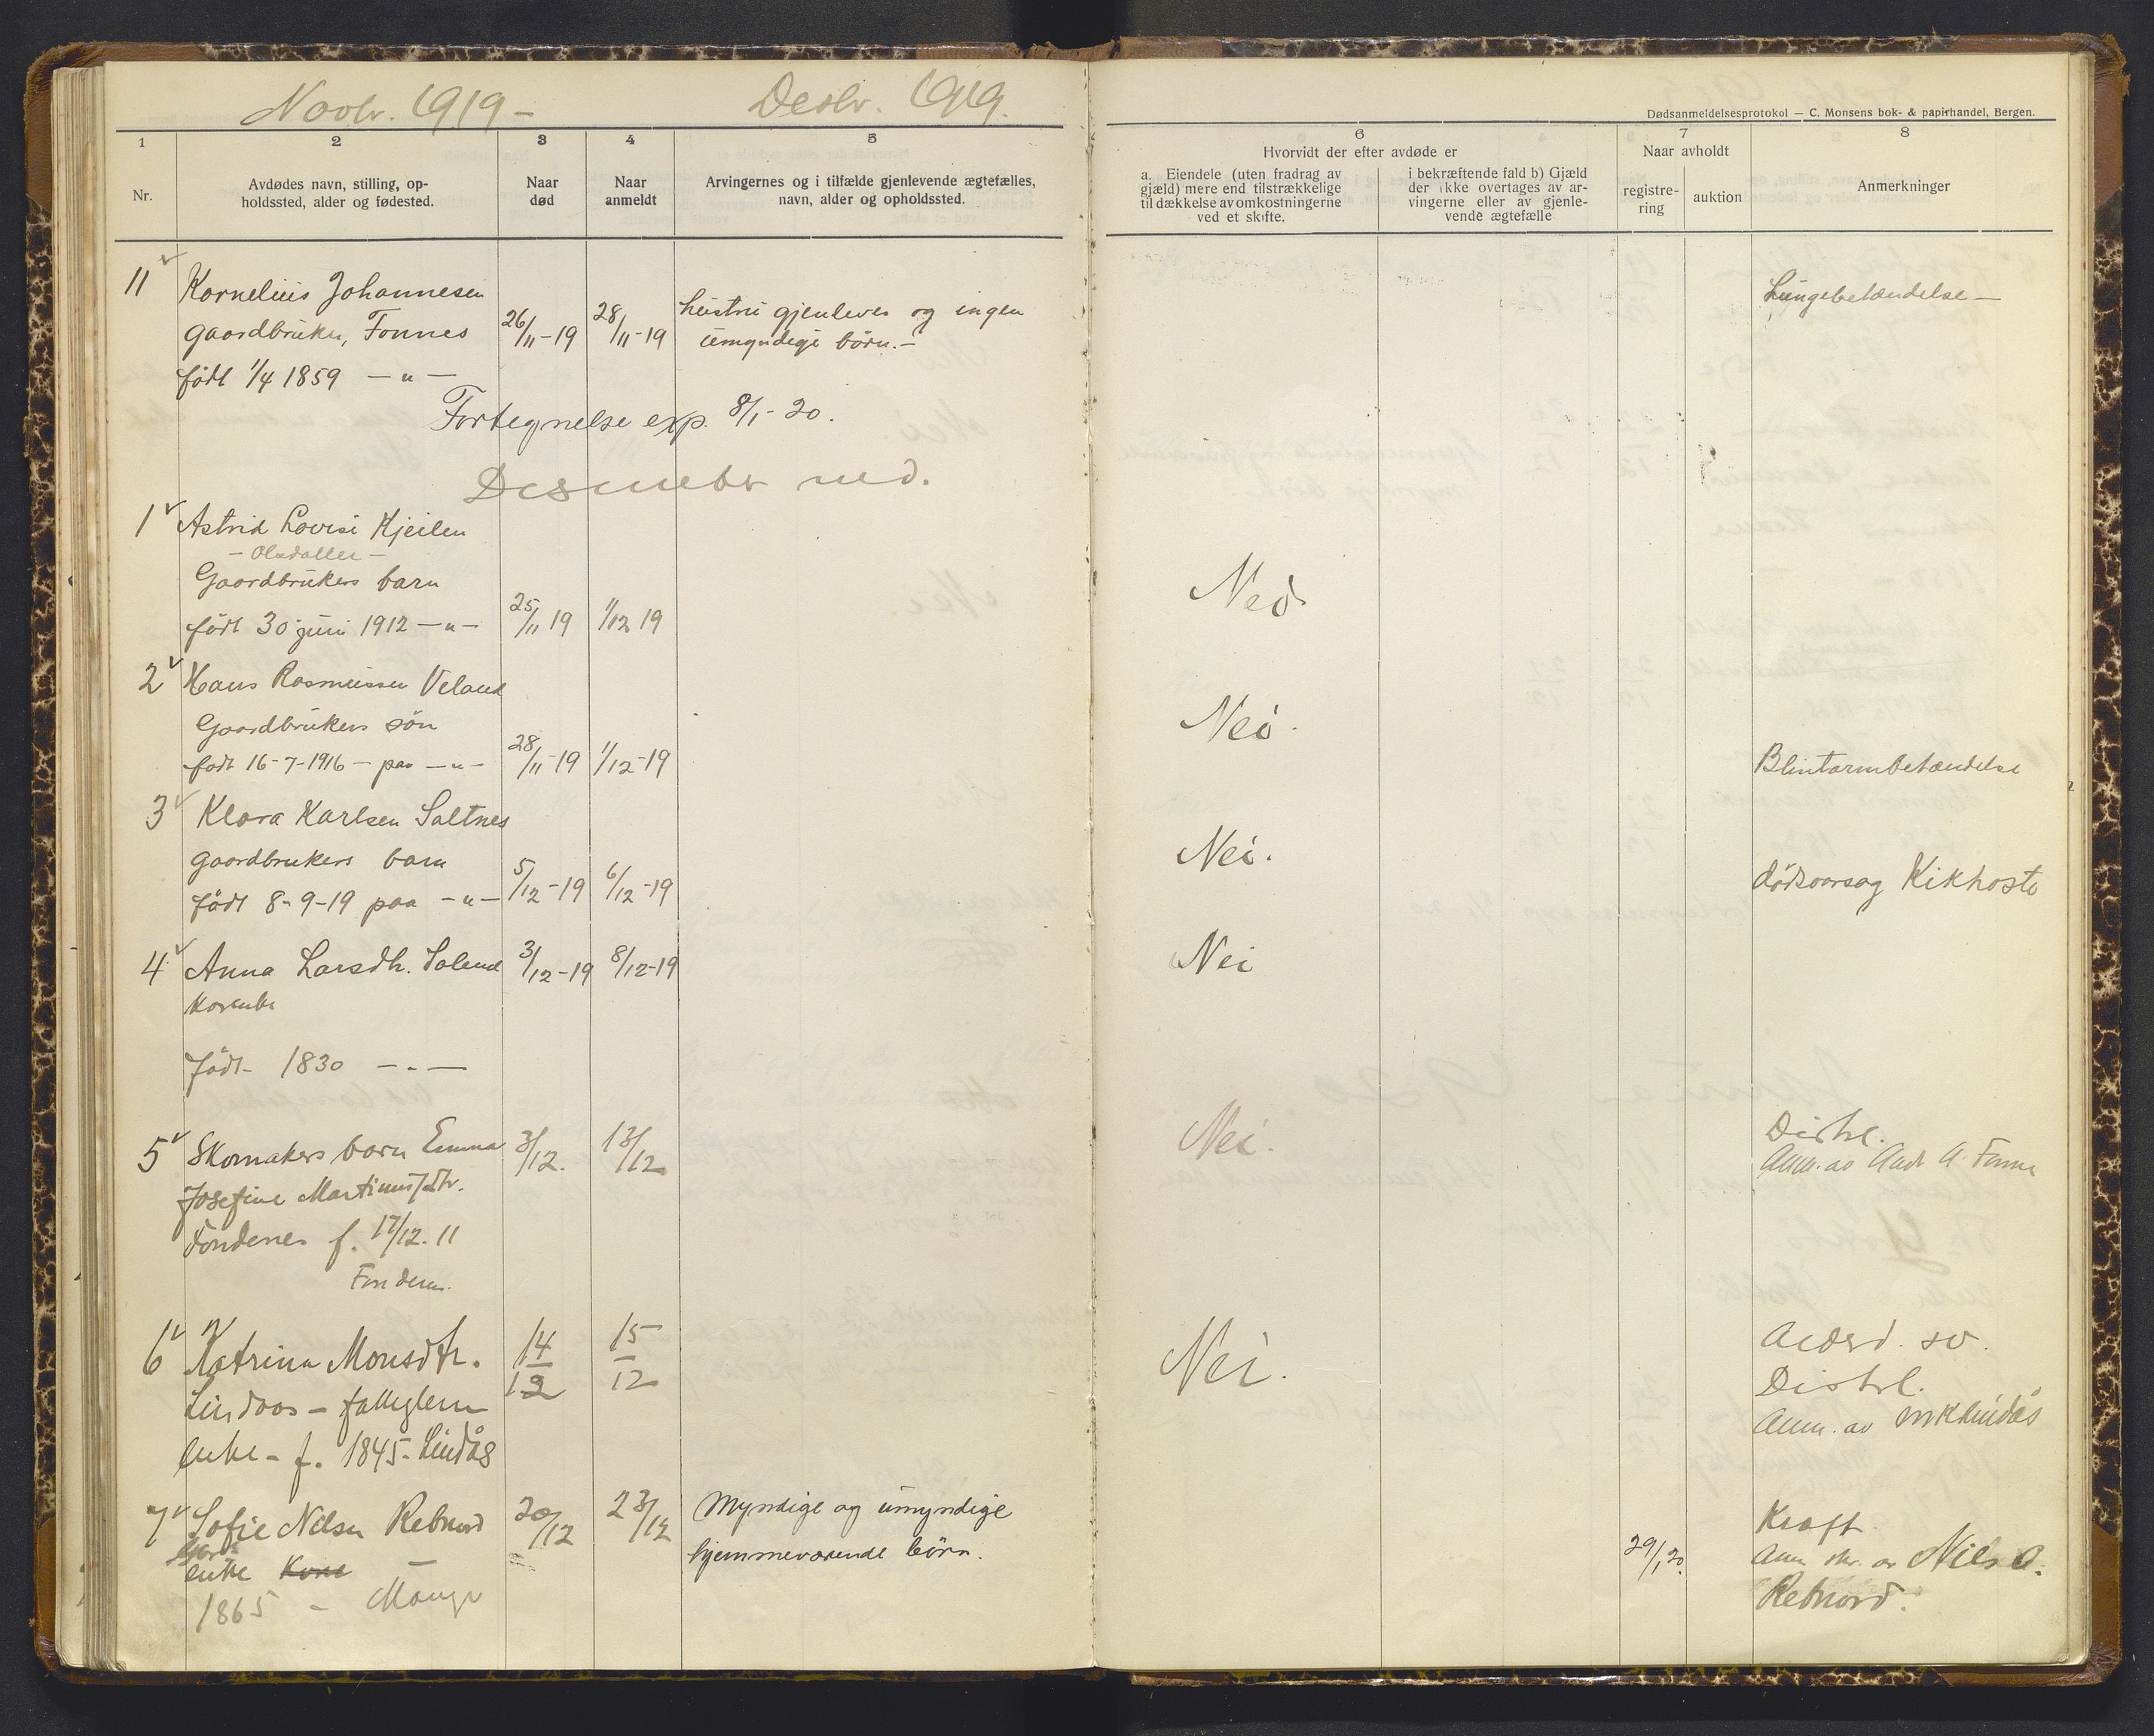 Novbr. 1919 –
Desbr. 1919.
Dødsanmeldelsesprotokol — C. Monsens bok- & papirhandel, Bergen.
1
2
3
4
5
6
7
8
Nr.
Avdødes navn, stilling, op-
holdssted, alder og fødested.
Naar
død
Naar
anmeldt
Arvingernes og i tilfælde gjenlevende ægtefælles,
navn, alder og opholdssted.
Hvorvidt der efter avdøde er
a. Eiendele (uten fradrag av
gjæld) mere end tilstrækkelige
til dækkelse av omkostningerne
ved et skifte.
i bekræftende fald b) Gjæld
der ikke overtages av ar-
vingerne eller av gjenle-
vende ægtefælle
Naar avholdt
registre-
ring
auktion
Anmerkninger
11 Kornelius Johannesen
gaardbruker, Fonnes
født 1/4 1859 — „ —
26/11-19
28/11-19
hustru gjenlever og ingen
umyndige børn. –
Lungebetændelse –
Fortegnelse exp. 8/1-20.
Desember md.
1 Astrid Lovise Kjeilen
– Olsdatter –
Gaardbrukers barn
født 30 juni 1912 — „ —
25/11 19
1/12 19
Nei
2 Hans Rasmussen Veland
Gaardbrukers søn
født 16-7-1916 – paa — „ —
28/11-19
1/12-19
Nei.
Blintarmbetændelse
3 Klara Karlsen Saltnes
gaardbrukers barn
født 8-9-19 paa — „ —
5/12-19
6/12-19
Nei.
dødsaarsag Kikhoste
4 Anna Larsdtr.
3/12-19
8/12-19
Nei
født 1830 — „ —
5 Skomakers barn Emma
Josefine Martinusdtr.
Fondenes f. 17/12.11
Fondenes.
3/12.
13/12
Nei.
Distrl.
Anm. av And. A. Fonnes
6 Katrina Monsdtr.
Lindaas – fattiglem
enke – f. 1845 – Lindås
14/12
15/12
Nei.
Distrl.
Anm. av MKLindås
7 Sofie Nilsen Rebnord
enke Kone
1865 – Mange
20/12
23/12
Myndige og umyndige
hjemmeværende børn.
29/1 20.
Kræft
Anm. skr. av Nils O.
Rebnord.